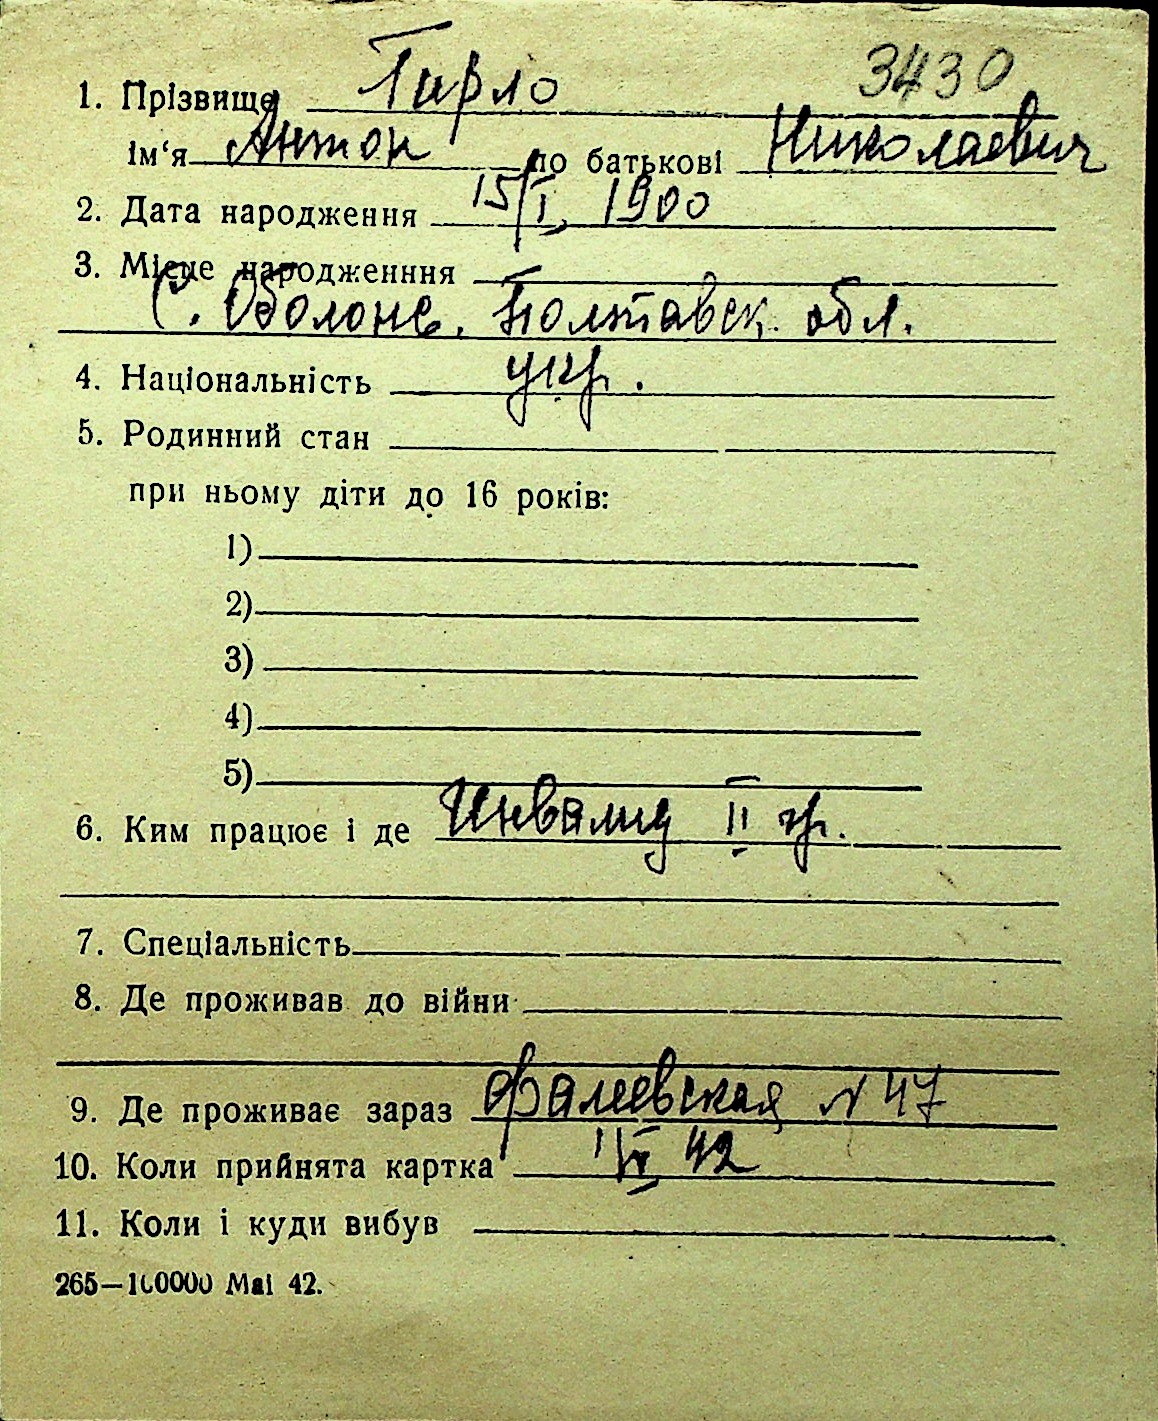 3430
1. Прізвище Гирло
ім'я Антон по батькові Николаевич
2. Дата народження 15/I, 1900
3. Місце народженння
С. Оболонь. Полтавск. обл.
4. Національність укр.
5. Родинний стан
при ньому діти до 16 років:
1)
2)
3)
4)
5)
6. Ким працює і де Инвалид II гр.
7. Спеціальність
8. Де проживав до війни
9. Де проживає зараз Фалеевская N 47
10. Коли прийнята картка 42
11. Коли і куди вибув
265—100000 Маі 42.